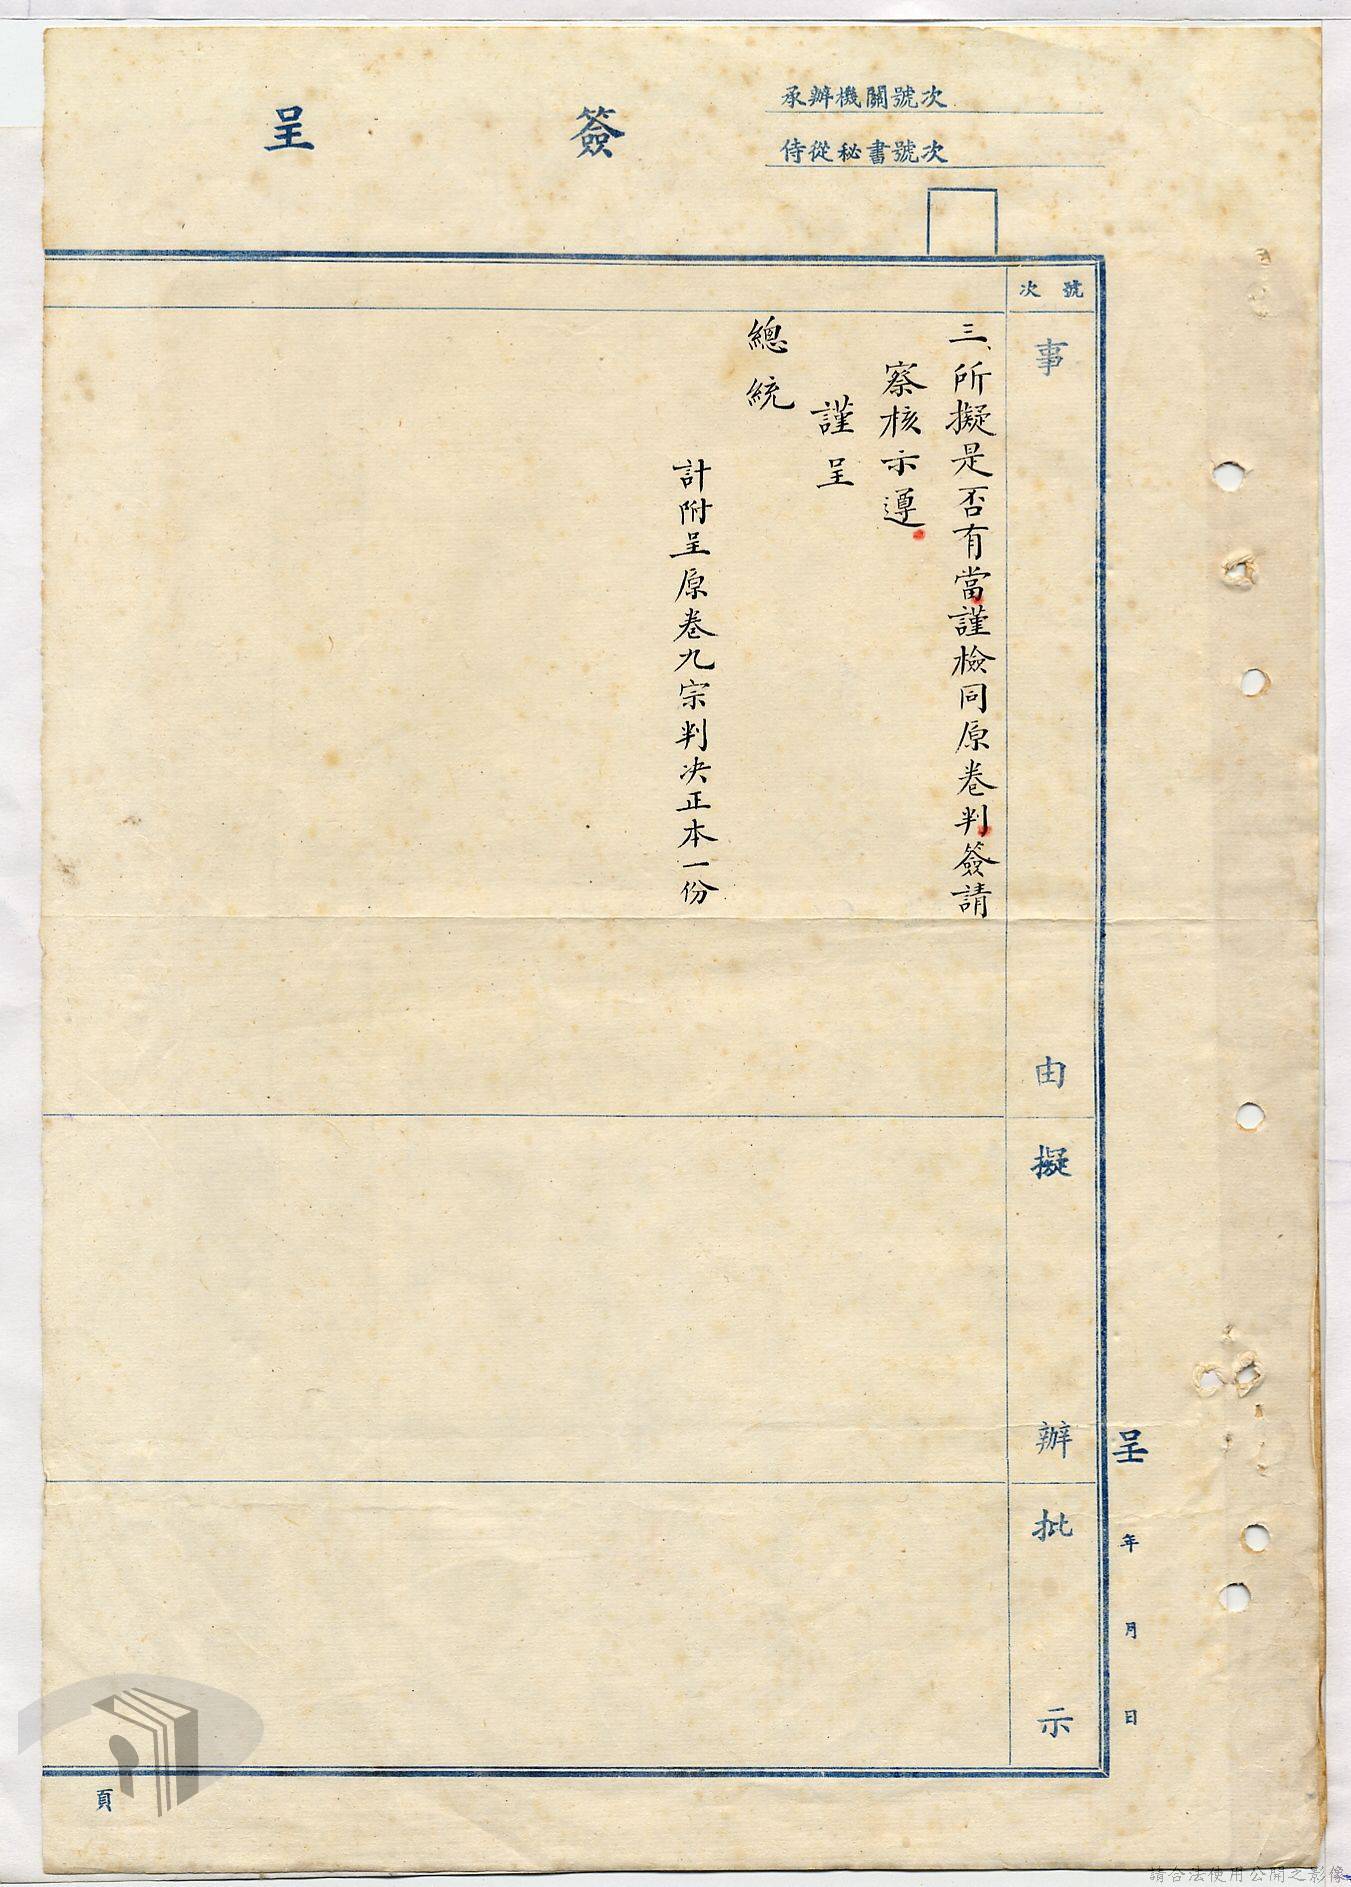 簽呈
承辦機關號次
侍從秘書號次
號次
事由
擬辦
批示
呈 年 月 日
三、所擬是否有當謹檢同原卷判簽請
察核示遵
謹呈
總統
計附呈原卷九宗判决正本一份
頁
請合法使用公開之影像